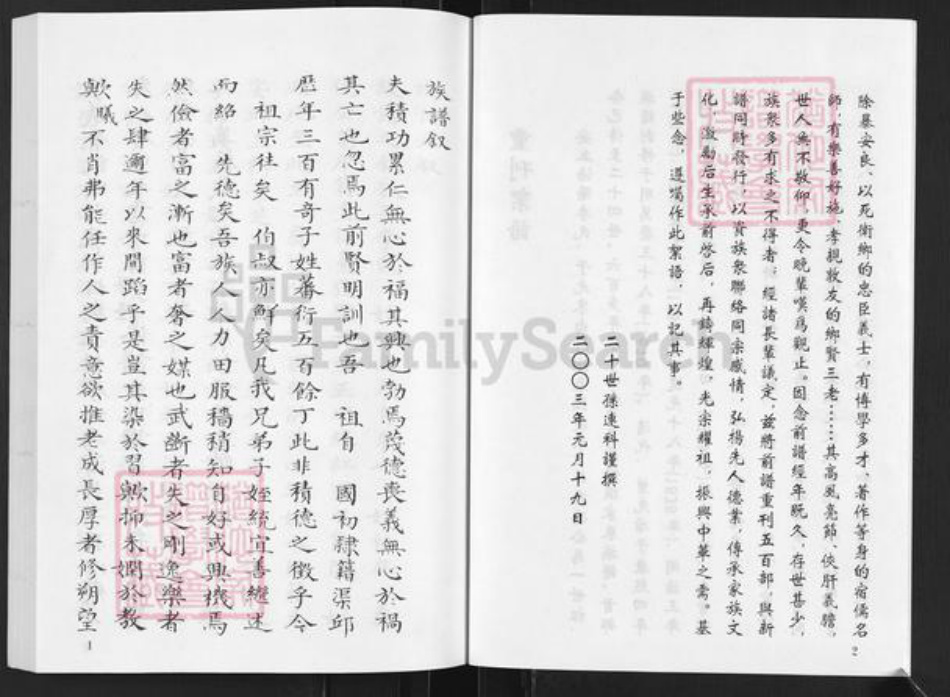 除暴安良、以死衛鄉的忠臣義士，有博學多才、著作等身的宿儒名
師，有樂善好施、孝親敦友的鄉賢三老……其高風亮節、俠肝義膽，
世人無不敬仰，更令晚輩嘆爲觀止。因念前譜經年既久，存世甚少，
族衆多有求之不得者，經諸長輩議定，茲將前譜重刊五百部，與新
譜同時發行，以貴族衆聯絡同宗感情，弘揚先人德業，傳承家族文
化，激勵后生承前啓后，再鑄輝煌，光宗耀祖，振興中華之需。基
于些念，遵囑作此絮語，以記其事。
二十世孫連科謹撰
二〇〇三年元月十九日
2
族譜叙
夫積功累仁無心於福其興也勃焉蔑德喪義無心於禍
其亡也忽焉此前賢明訓也吾 祖自 國初隸籍渠邱
歷年三百有奇子姓蕃衍五百餘丁此非積德之徵乎今
祖宗往矣 伯叔亦鮮矣凡我兄弟子姪統宜善繼述
而紹 先德矣吾族人人力田服穡稍知自好或興機焉
然儉者富之漸也富者奢之媒也武斷者失之剛逸樂者
失之肆邇年以來間蹈乎是豈其染於習歟抑未嫻於教
歟曦不肖弗能任作人之責意欲推老成長厚者修朔望
1
FamilySearch